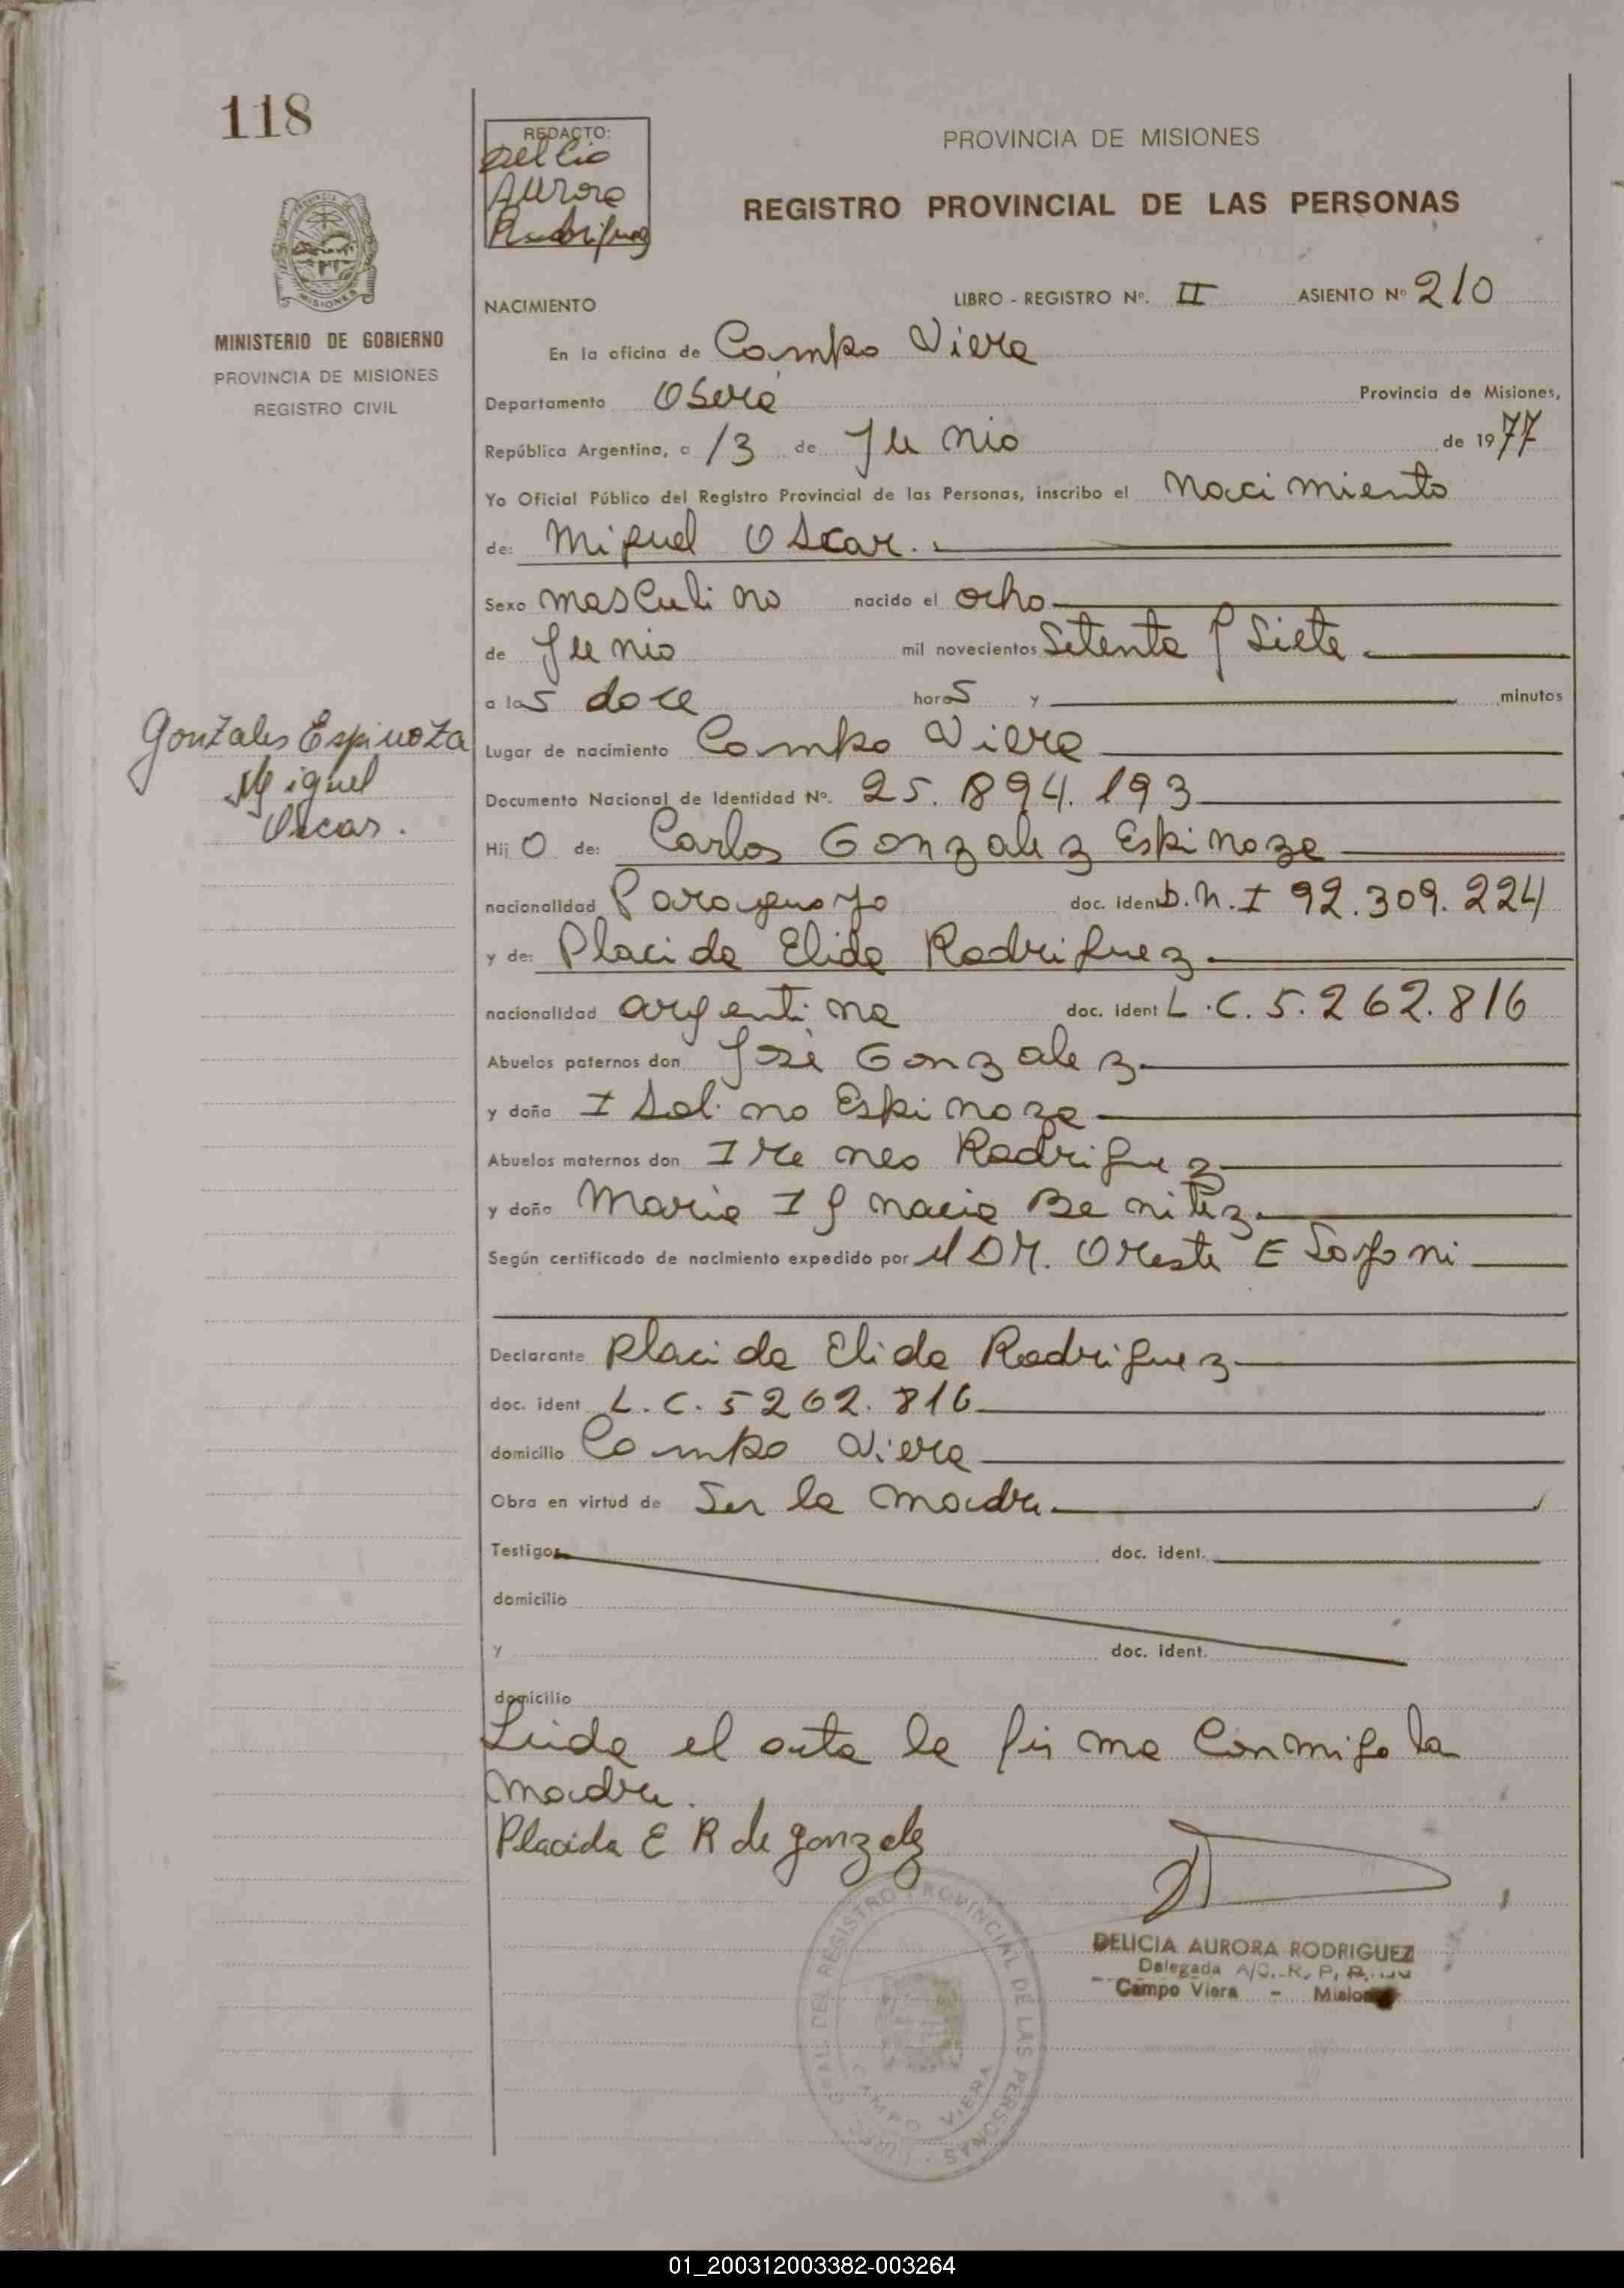 118
REDACTO:
Delicia
Aurora
Rodriguez
PROVINCIA DE MISIONES
REGISTRO PROVINCIAL DE LAS PERSONAS
MISIONES
MINISTERIO DE GOBIERNO
PROVINCIA DE MISIONES
REGISTRO CIVIL
NACIMIENTO LIBRO - REGISTRO Nº. II ASIENTO Nº 210
En la oficina de Campo Viera
Departamento Oberá Provincia de Misiones,
República Argentina, a 13 de Junio de 1977
Yo Oficial Público del Registro Provincial de las Personas, inscribo el Nacimiento
de: Miguel Oscar.
Sexo masculino nacido el ocho
de Junio mil novecientos Setenta y Siete
a las doce horas y minutos
Gonzales Espinoza
Miguel
Oscar.
Lugar de nacimiento Campo Viera
Documento Nacional de Identidad Nº. 25.894.193
Hijo de: Carlos Gonzalez Espinoza
nacionalidad Paraguayo doc. ident D.N.I 92.309.224
y de: Placida Elida Rodriguez
nacionalidad argentina doc. ident L.C. 5.262.816
Abuelos paternos don José Gonzalez
y doña Isolina Espinoza
Abuelos maternos don Ireneo Rodriguez
y doña Maria Ignacia Benitez
Según certificado de nacimiento expedido por el DR. Oreste E
Declarante Placida Elida Rodriguez
doc. ident L.C. 5262.816
domicilio Campo Viera
Obra en virtud de Ser la madre
Testigos doc. ident.
domicilio
y doc. ident.
domicilio
Leida el acta la firma Conmigo la
madre.
Placida E R de gonzalez
DELICIA AURORA RODRIGUEZ
Delegada A/C. R. P. P.
Campo Viera - Misiones
REGISTRO PROVINCIAL DE LAS PERSONAS
CAMPO VIERA
01_200312003382-003264